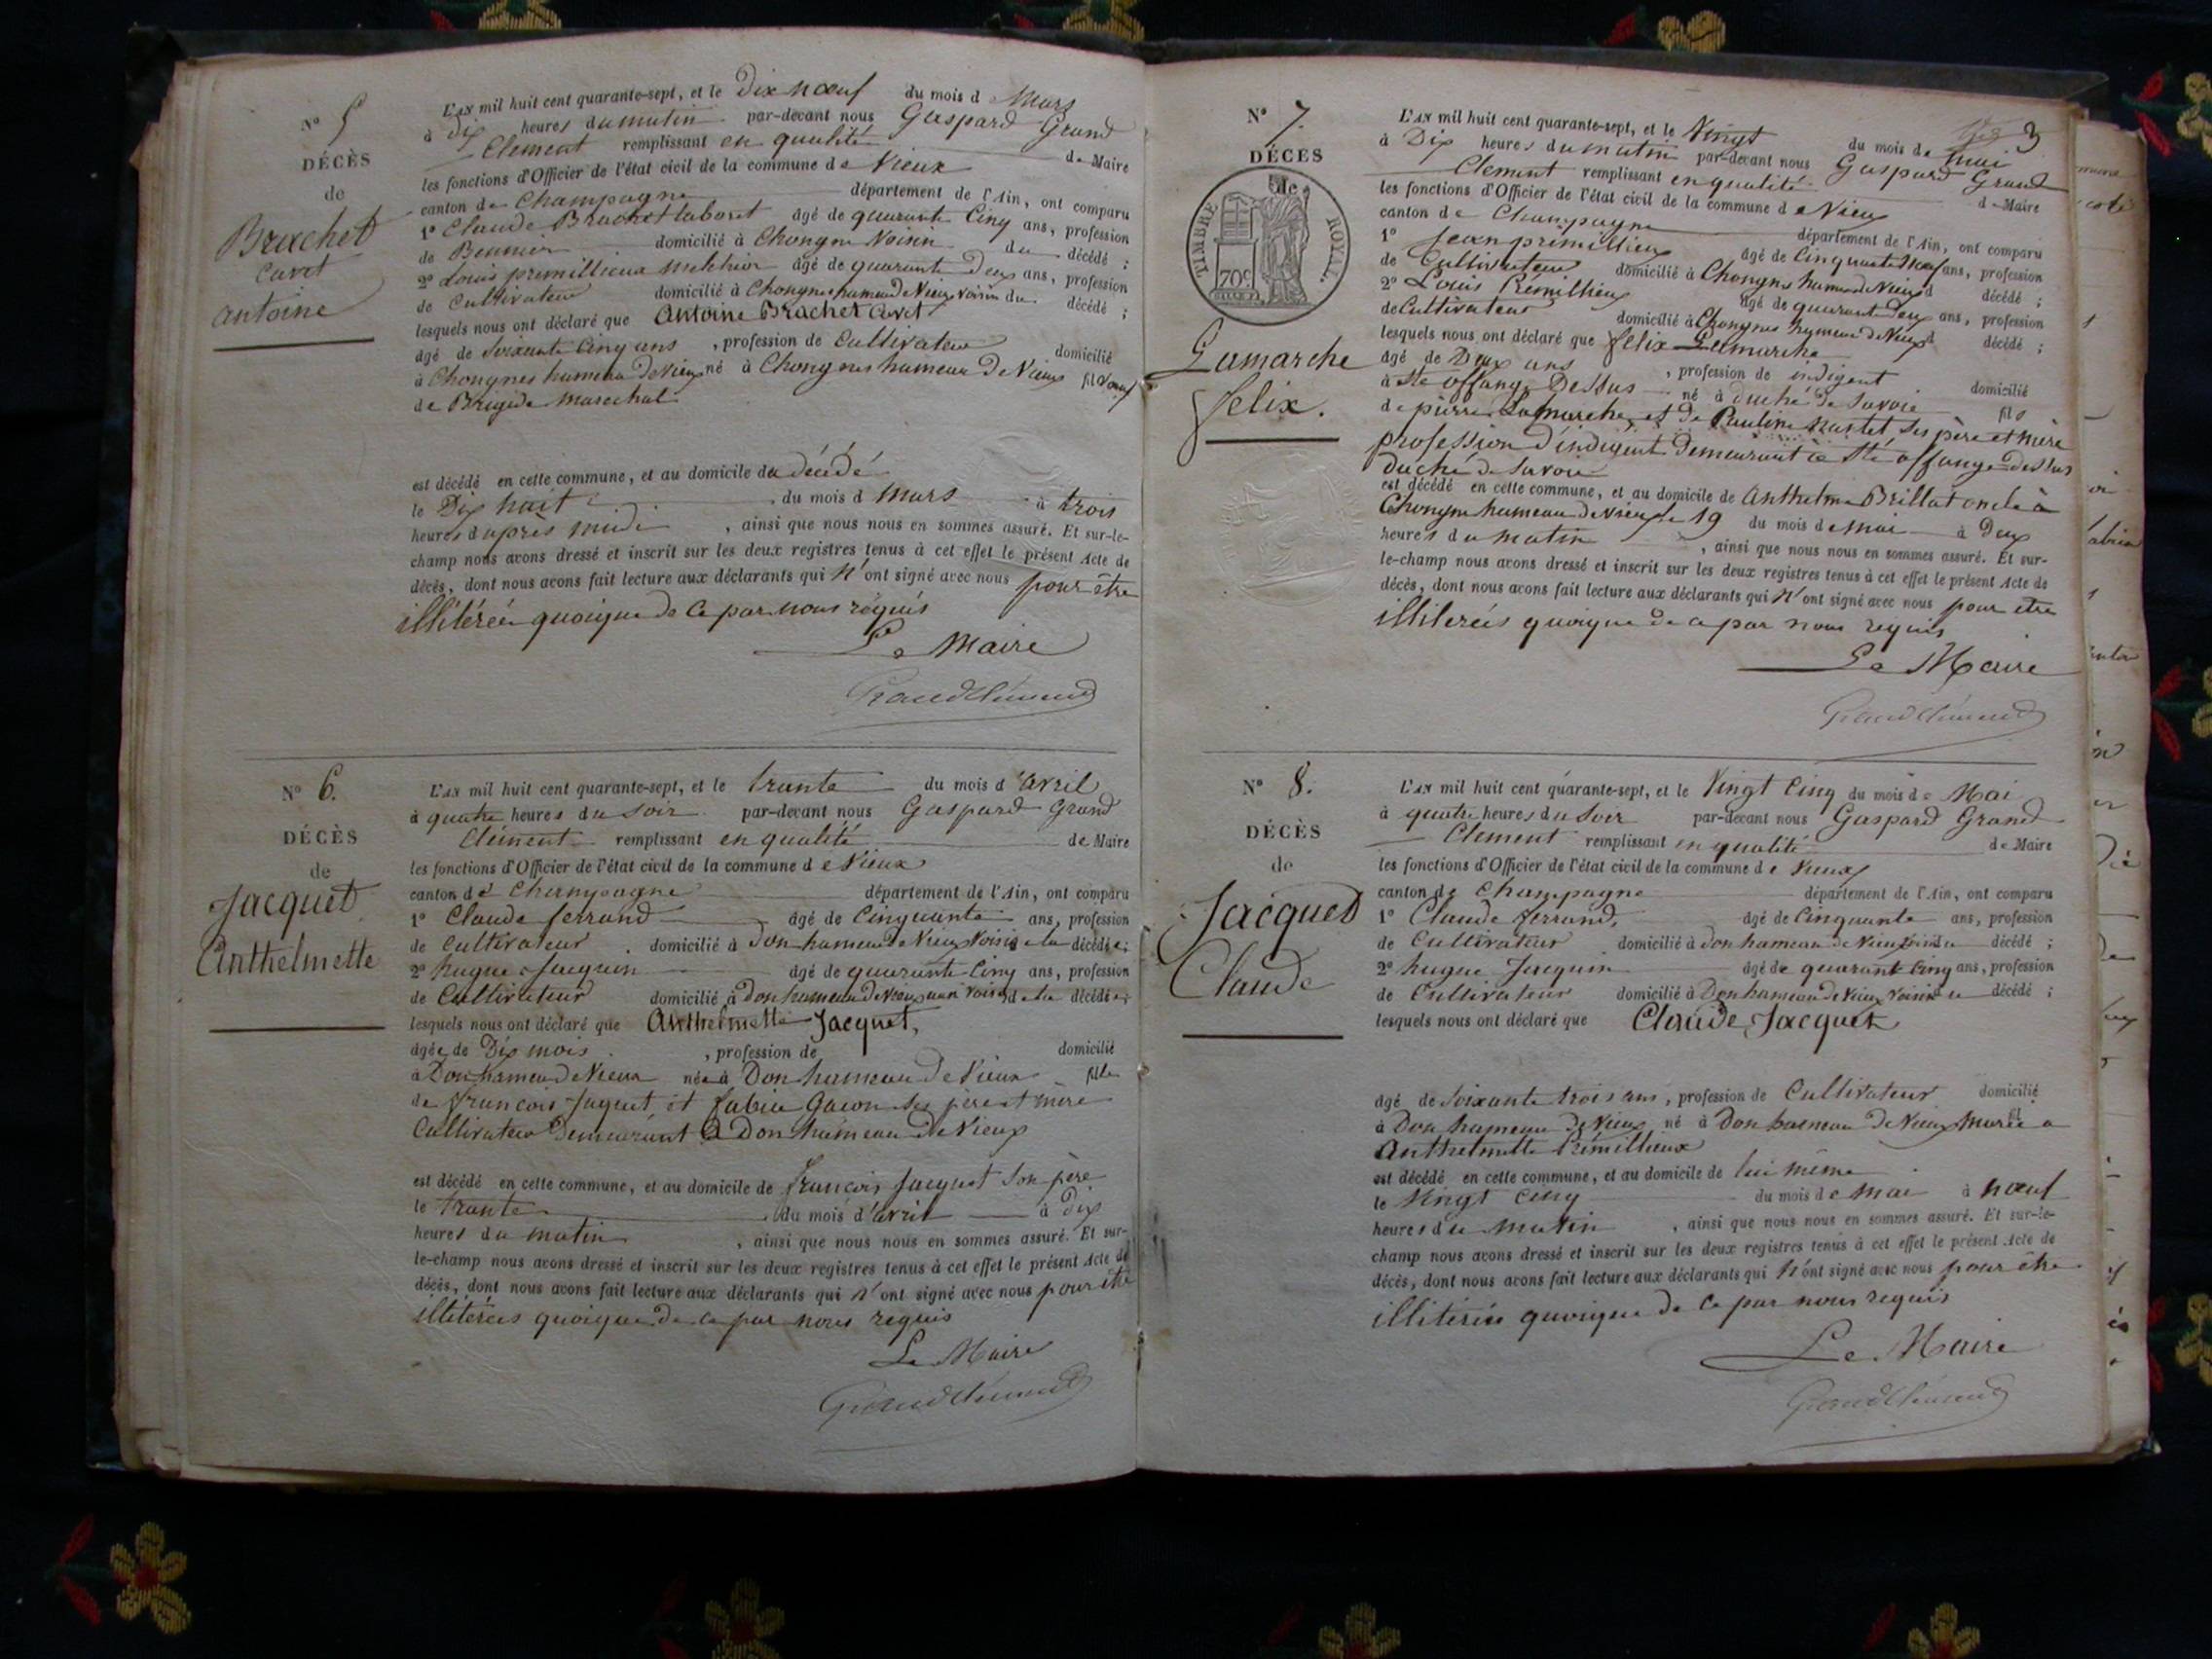 N° 5
DÉCÈS
de
Brachet
Curet
antoine
L'AN mil huit cent quarante-sept, et le Dix nœuf du mois d Mars
à Dix heures du matin par-devant nous Gaspard Grand
Clement remplissant en qualité de Maire
les fonctions d'Officier de l'état civil de la commune de Vieux
canton de Champagne département de l'Ain, ont comparu
1° Claude Brachet laboret âgé de quarante Cinq ans, profession
de domicilié à Chongne Voisin du décédé ;
2° Louis premillieux Melchior âgé de quarante Deux ans, profession
de Cultivateur domicilié à Chongnes hameau de Vieux voisin du décédé ;
lesquels nous ont déclaré que Antoine Brachet Curet
âgé de Soixante Cinq ans , profession de Cultivateur domicilié
à Chongnes hameau de Vieux né à Chongnes hameau De Vieux
de Brigide Marechal
est décédé en cette commune, et au domicile du décédé
le Dix huit du mois d Mars à trois
heures d'après midi , ainsi que nous nous en sommes assuré. Et sur-le-
champ nous avons dressé et inscrit sur les deux registres tenus à cet effet le présent Acte de
décès, dont nous avons fait lecture aux déclarants qui n'ont signé avec nous pour être
illiterées quoique de ce par nous requis
Le Maire
Grand Clément
N° 6.
DÉCÈS
de
Jacquet
Anthelmette
L'AN mil huit cent quarante-sept, et le trante du mois d'avril
à quatre heures du soir par-devant nous Gaspard Grand
Clément remplissant en qualité de Maire
les fonctions d'Officier de l'état civil de la commune de Vieux
canton de Champagne département de l'Ain, ont comparu
1° Claude ferrand âgé de Cinquante ans, profession
de Cultivateur domicilié à Don hameau de Vieux Voisin de la décédée ;
2° hugue Jacquin âgé de quarante Cinq ans, profession
de Cultivateur domicilié à Don hameau de Vieux voisin de la décédée ;
lesquels nous ont déclaré que Anthelmette Jacquet,
âgée de Dix mois , profession de domicilié
à Don hameau de Vieux née à Don hameau de Vieux fille
de françois Jaquet et fabiee Gacon Ses père et mère
Cultivateur Demeurant à Don hameau de Vieux
est décédé en cette commune, et au domicile de françois Jacquet son père
le trante du mois d'avril à dix
heures du matin , ainsi que nous nous en sommes assuré. Et sur-
le-champ nous avons dressé et inscrit sur les deux registres tenus à cet effet le présent Acte de
décès, dont nous avons fait lecture aux déclarants qui n'ont signé avec nous pour être
illiterées quoique de ce par nous requis
Le Maire
Grand Clément
3
N° 7.
DÉCÈS
de
TIMBRE ROYAL
70c
Lamarche
felix.
L'AN mil huit cent quarante-sept, et le Vingt du mois de mai
à Dix heures du matin par-devant nous Gaspard Grand
Clement remplissant en qualité de Maire
les fonctions d'Officier de l'état civil de la commune de Vieux
canton de Champagne département de l'Ain, ont comparu
1° Jean primillieux âgé de Cinquante nœuf ans, profession
de Cultivateur domicilié à Chongnes hameau de Vieux d décédé ;
2° Louis Premillieux âgé de quarante deux ans, profession
de Cultivateur domicilié à Chongnes hameau de Vieux d décédé ;
lesquels nous ont déclaré que felix Lamarche
âgé de Deux ans , profession de indigent domicilié
à Ste offange Dessus né à duché de Savoie fils
de pierre Lamarche et de Pauline Ses père et mère
profession d'indigent Demeurant à Ste offange dessus
Duché de Savoie
est décédé en cette commune, et au domicile de Anthelme Brillat oncle à
Chongne hameau de Vieux le 19 du mois de mai à Deux
heures du matin , ainsi que nous nous en sommes assuré. Et sur-
le-champ nous avons dressé et inscrit sur les deux registres tenus à cet effet le présent Acte de
décès, dont nous avons fait lecture aux déclarants qui n'ont signé avec nous pour être
illiterées quoique de ce par nous requis
Le Maire
Grand Clément
N° 8.
DÉCÈS
de
Jacquet
Claude
L'AN mil huit cent quarante-sept, et le Vingt Cinq du mois de Mai
à quatre heures du Soir par-devant nous Gaspard Grand
Clement remplissant en qualité de Maire
les fonctions d'Officier de l'état civil de la commune de Vieux
canton de Champagne département de l'Ain, ont comparu
1° Claude ferrand, âgé de Cinquante ans, profession
de Cultivateur domicilié à Don hameau de Vieux voisin du décédé ;
2° hugue Jacquin âgé de quarante Cinq ans, profession
de Cultivateur domicilié à Don hameau de Vieux voisin du décédé ;
lesquels nous ont déclaré que Claude Jacquet
âgé de Soixante trois ans, profession de Cultivateur domicilié
à Don hameau de Vieux né à Don hameau De Vieux Marié a
Anthelmette Prémillieux
est décédé en cette commune, et au domicile de lui même
le Vingt Cinq du mois de mai à nœuf
heures du matin , ainsi que nous nous en sommes assuré. Et sur-le-
champ nous avons dressé et inscrit sur les deux registres tenus à cet effet le présent Acte de
décès, dont nous avons fait lecture aux déclarants qui n'ont signé avec nous pour être
illiterées quoique de ce par nous requis
Le Maire
Grand Clément